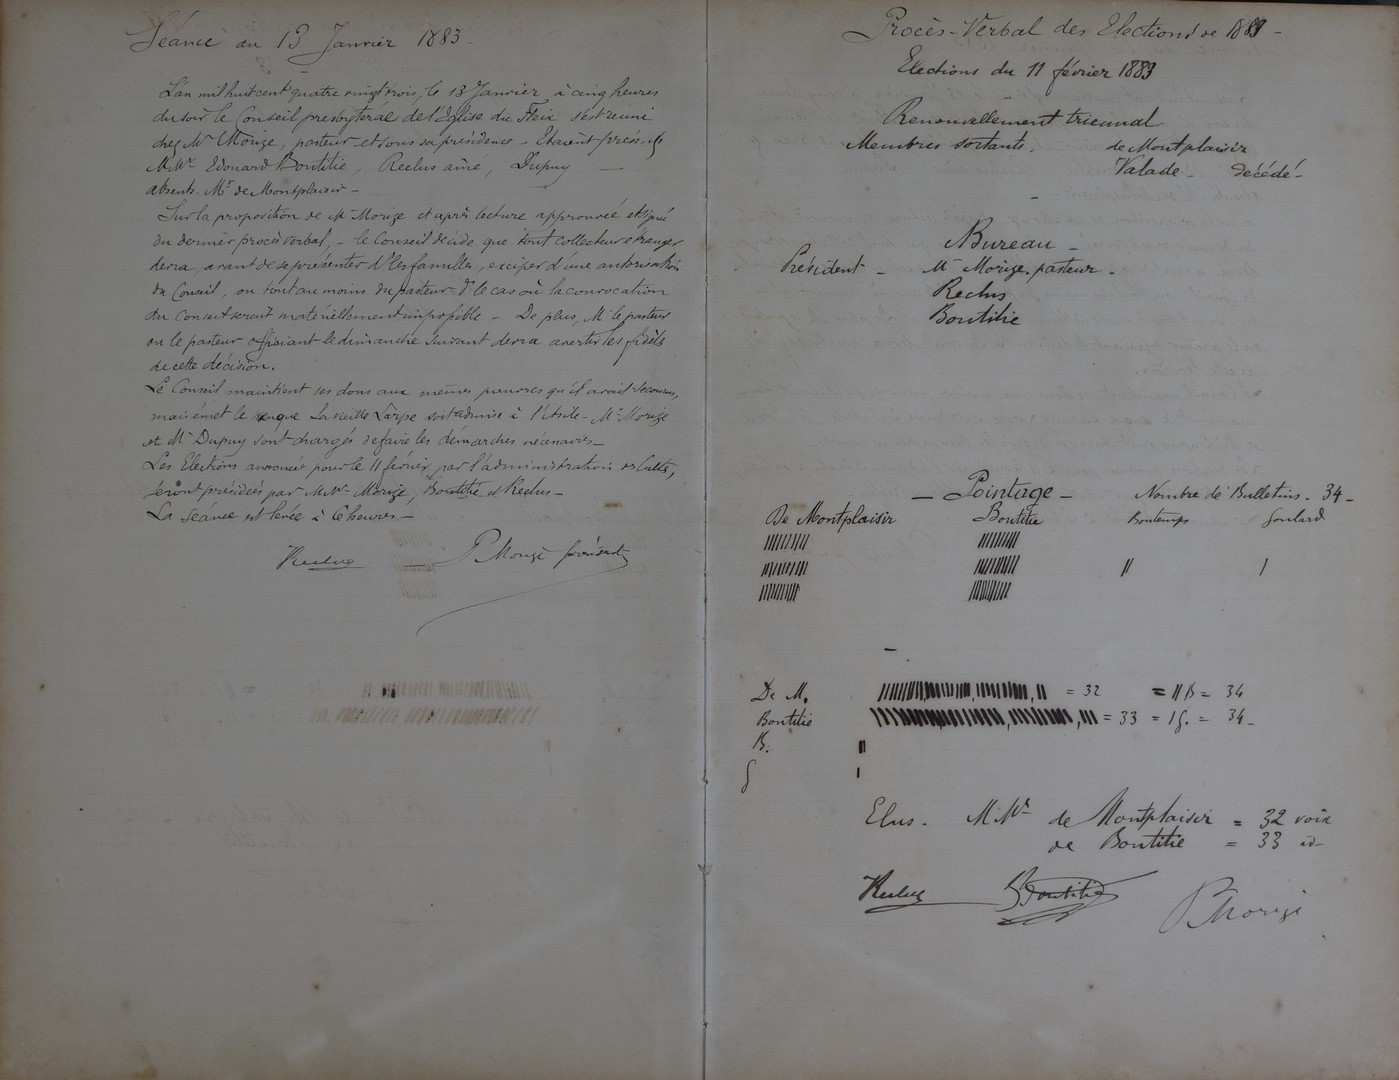 Séance du 13 Janvier 1883 -
L'an mil huit cent quatre vingt trois, le 13 Janvier à cinq heures
du soir le Conseil presbytéral de l'Eglise du Fleix s'est réuni
chez Mr Morize, pasteur et sous sa présidence - Etaient présents
MMrs Edouard Boutitie, Reclus aîné, Dupuy -
absents. Mr de Montplaisir -
Sur la proposition de Mr Morize et après lecture approuvée et signé
du dernier procès verbal, - le Conseil décide que tout collecteur étranger
devra, avant de se présenter ds les familles, exciper d'une autorisation
du Conseil, ou tout au moins du pasteur ds le cas où la convocation
du Conseil serait matériellement impossible - De plus, Mr le pasteur
ou le pasteur officiant le dimanche suivant devra avertir les fidèles
de cette décision.
Le Conseil maintient ses dons aux mêmes pauvres qu'il avait secourus,
mais émet le que La vieille Larpe soit admise à l'Asile - Mr Morize
et Mr Dupuy sont chargés de faire les démarches nécessaires -
Les Elections annoncées pour le 11 février par l'administration des Cultes,
seront présidées par MMrs Morize, Boutitie et Reclus -
La Séance est levée à 6 heures -
Reclus P Morize président
Procès-Verbal des Elections de 1883 -
Elections du 11 février 1883
Renouvellement triennal
Membres sortants. de Montplaisir
Valade - décédé -
Bureau -
Président - Mr Morize. pasteur -
Reclus
Boutitie
- Pointage - Nombre de Bulletins - 34 -
De Montplaisir Boutitie Bontemps Goulard
De M. = 32 = 11 B = 34
Boutitie = 33 = 1 G. = 34 -
B.
G
Elus - MMrs de Montplaisir = 32 voix
de Boutitie = 33 id -
Reclus Boutitie P Morize